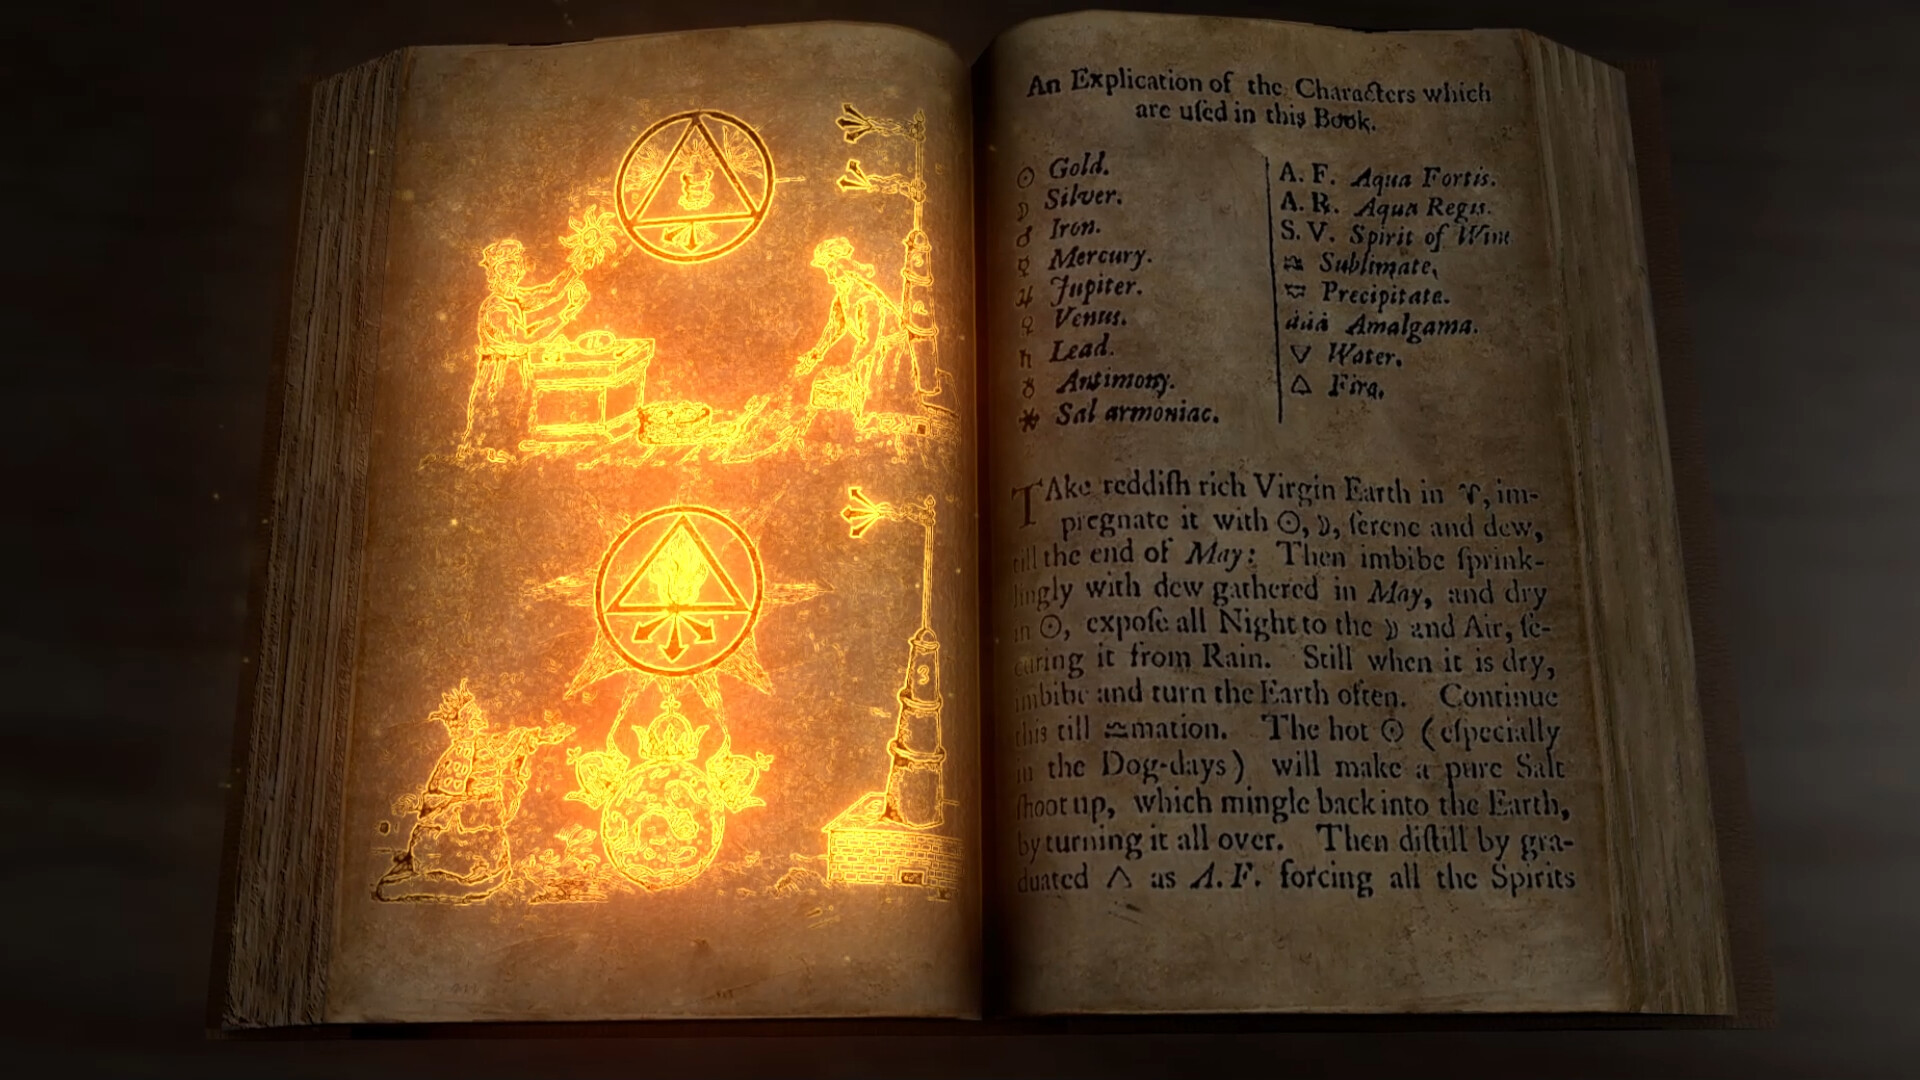 3
An Explication of the Characters which
are uſed in this Book.
☉ Gold.
☽ Silver.
♂ Iron.
☿ Mercury.
♃ Jupiter.
♀ Venus.
♄ Lead.
♁ Antimony.
✶ Sal armoniac.
A. F. Aqua Fortis.
A. R. Aqua Regis.
S. V. Spirit of Wine
Sublimate,
Precipitate.
aaa Amalgama.
▽ Water.
△ Fire,
TAke reddiſh rich Virgin Earth in ♈, im-
pregnate it with ☉, ☽, ſerene and dew,
till the end of May: Then imbibe ſprink-
lingly with dew gathered in May, and dry
in ☉, expoſe all Night to the ☽ and Air, ſe-
curing it from Rain. Still when it is dry,
imbibe and turn the Earth often. Continue
this till ♎mation. The hot ☉ (eſpecially
in the Dog-days) will make a pure Salt
ſhoot up, which mingle back into the Earth,
by turning it all over. Then diſtill by gra-
duated △ as A. F. forcing all the Spirits